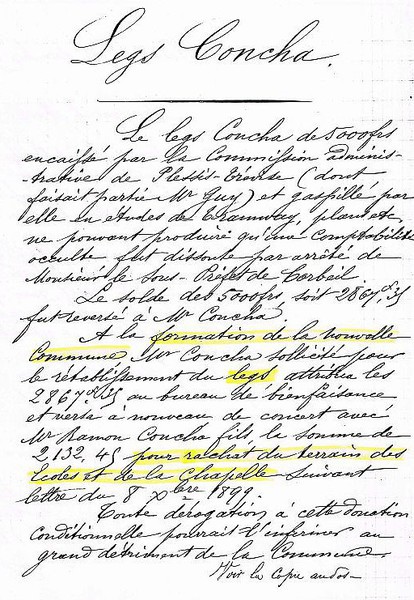 Legs Concha.
Le legs Concha de 5000frs
encaissé par la Commission adminis-
-trative de Plessis-Trévise (dont
faisait partie Mr Guy) et gaspillé par
elle en études de Tramway, plans etc,
ne pouvant produire qu'une comptabilité
occulte fut dissoute par arrêté de
Monsieur le Sous-Préfet de Corbeil
Le solde des 5000frs, soit 2867,35
fut reversé à Mr Concha.
A la formation de la nouvelle
Commune Mr Concha sollicité pour
le rétablissement du legs attribua les
2867,35 au bureau de bienfaisance
et versa à nouveau de concert avec
Mr Ramon Concha fils, la somme de
2132,45 pour rachat du terrain des
Ecoles et de la Chapelle suivant
lettre du 8 Xbre 1899.
Toute dérogation a cette donation
conditionnelle pourrait l'infirmer au
grand détriment de la Commune
Voir la copie au dos-